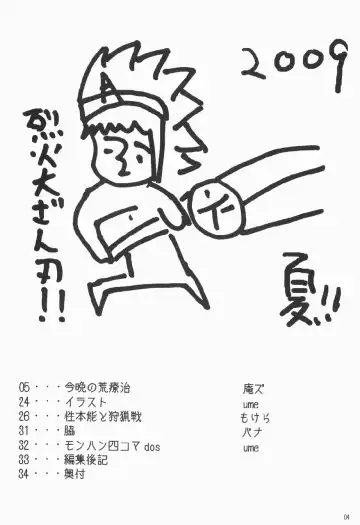 2009
A
烈火大ざん刃!!
イ
夏!!
05・・・今晩の荒療治 庵ズ
24・・・イラスト ume
26・・・性本能と狩猟戦 もけら
31・・・脇 バナ
32・・・モンハン四コマdos ume
33・・・編集後記
34・・・奥付
04